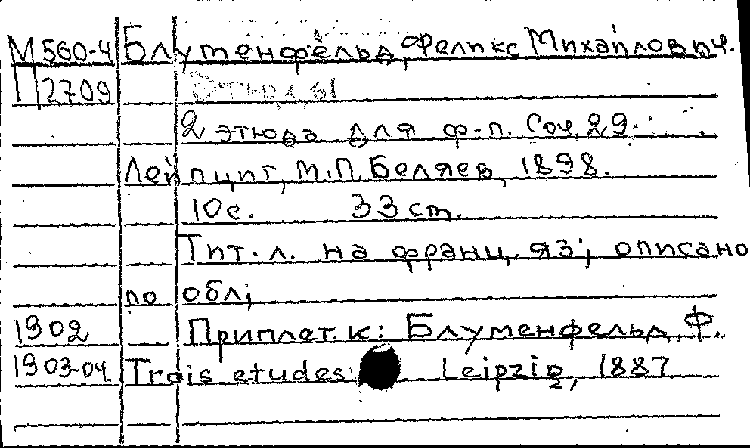 М560-4 Блуменфельд, Феликс Михайлович.
П2709 Этюды
2 этюда для ф-п. Соч. 29.
Лейпциг, М.П. Беляев, 1898.
10с. 33 cm.
Тит. л. на франц. яз; описано
по обл;
1902 Приплет. к: Блуменфельд, Ф.
1903-04 Trois etudes Leipzig, 1887